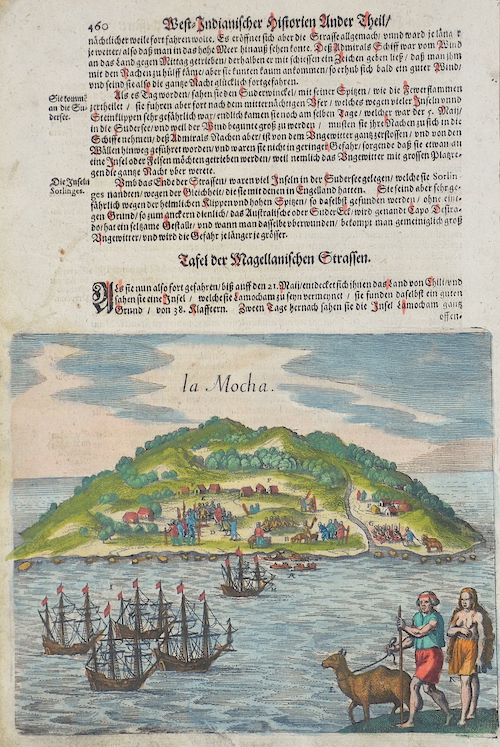 460 West-Indianischer Historien Ander Theil/
nächtlicher weile fort fahren wolte. Es eröffnet sich aber die Strasse allgemach/ vnnd ward je läng
je weiter/ also daß man in das hohe Meer hinauß sehen konte. Deß Admirals Schiff war vom Wind
an das Land gegen Mittag getrieben/ derhalben er mit schiessen ein Zeichen geben ließ/ daß man jhm
mit den Nachen zu hülff käme/ aber sie kunten kaum ankommen/ so erhub sich bald ein guter Wind/
vnd seind sie also die gantze Nacht glücklich fortgefahren.
Sie komm
an die Su-
dersee.
Als es Tag worden/ sahen sie den Suderwinckel/ mit seiner Spitzen/ wie die Fewerflammen
zertheilet/ sie fuhren aber fort nach dem mitternächtigen Vfer/ welches wegen vieler Inseln vnnd
Steinklippen sehr gefährlich war/ endlich kamen sie noch am selben Tage/ welcher war der 5. Maij/
in die Sudersee/ vnd weil der Wind begunte groß zu werden/ musten sie jhre Nachen zu sich in die
Schiffe nehmen/ deß Admirals Nachen aber/ ist von dem Vngewitter gantz zerflossen/ vnd von den
Wällen hinweg geführet worden/ vnd waren sie nicht in geringer Gefahr/ sorgende daß sie etwan an
eine Insel oder Felsen möchten getrieben werden/ weil nemlich das Vngewitter mit grossen Platzre-
gen die gantze Nacht vber werete.
Die Inseln
Sorlinges.
Vmb das End der Strassen/ waren viel Inseln in der Sudersee gelegen/ welche sie Sorlin-
ges nandten/ wegen der Gleichheit/ die sie mit denen in Engelland hatten. Sie seind aber sehr ge-
fährlich wegen der heimlichen Klippen vnd hohen Spitzen/ so daselbst gefunden werden/ ohne eini-
gen Grund/ so zum anckern dienlich/ das Australische oder Suder Eck/ wird genandt Capo Desira-
do/ hat ein seltzame Gestalt/ vnd wann man dasselbe vberwunden/ bekompt man gemeiniglich groß
Vngewitter/ vnd wird die Gefahr je länger je grösser.
Tafel der Magellanischen Strassen.
Als sie nun also fort gefahren/ biß auff den 21. Maij/ entdecket sich jhnen das Land von Chili/ vnd
sahen sie eine Insel/ welche sie Lamocham zu seyn vermeynet/ sie funden daselbst ein guten
Grund/ von 38. Klafftern. Zween Tage hernach sahen sie die Insel Lamocham gantz
offen.
la Mocha.